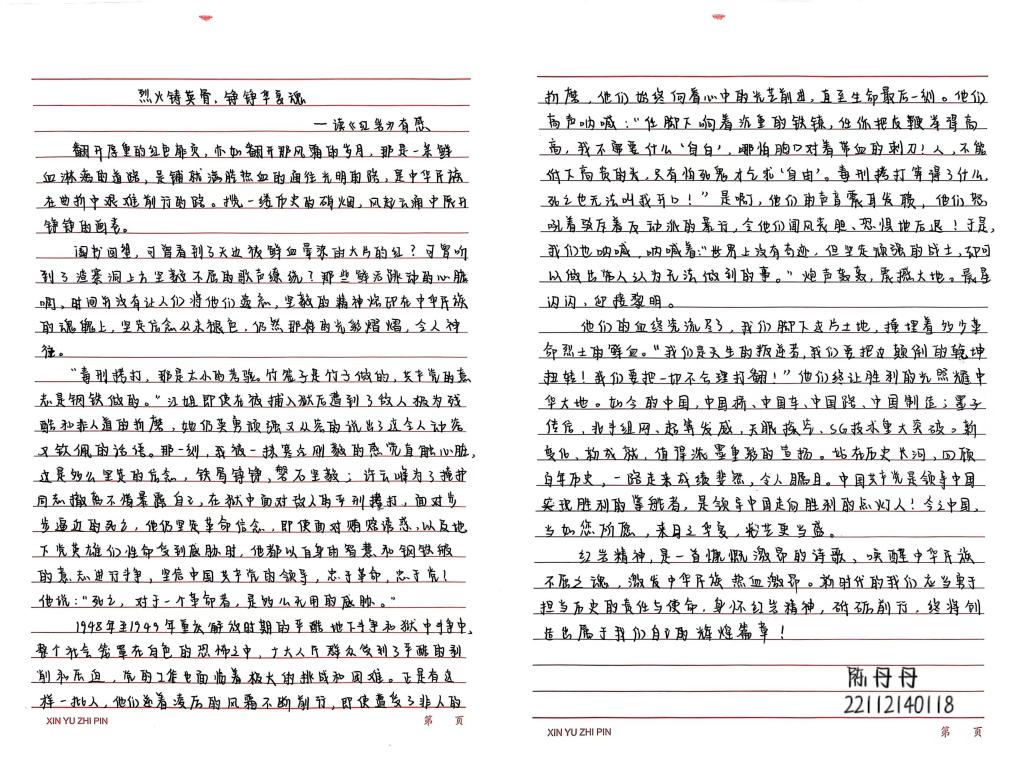 烈火铸英骨，铮铮华夏魂
—读《红岩》有感
翻开厚重的红色扉页，亦如翻开那风霜的岁月，那是一条鲜
血淋漓的道路，是铺就满腔热血的通往光明的路，是中华民族
在曲折中艰难前行的路。揽一缕历史的硝烟，风起云涌中展开
铮铮的画卷。
阖书回想，可曾看到了天边被鲜血晕染的大片的红？可曾听
到了渣滓洞上方坚毅不屈的歌声缭绕？那些鲜活跳动的心脏
啊，时间并没有让人们将他们遗忘，坚毅的精神烙印在中华民族
的魂魄上，坚贞信念从未褪色，仍然那样的光彩熠熠，令人神
往。
“毒刑拷打，那是太小的考验。竹签子是竹子做的，共产党的意
志是钢铁做的。”江姐即使在被捕入狱后遭到了敌人极为残
酷和非人道的折磨，她仍英勇顽强又从容的说出了这令人动容
又钦佩的话语。那一刻，我被一抹笑含刚毅的感觉直触心脏，
这是多么坚定的信念，铁骨铮铮，磐石坚毅；许云峰为了掩护
同志撤离不惜暴露自己，在狱中面对敌人的严刑拷打，面对步
步逼近的死亡，他仍坚定革命信念，即使面对贿赂诱惑，以及地
下党英雄们性命受到威胁时，他都以自身的智慧和钢铁般
的意志进行斗争，坚信中国共产党的领导，忠于革命，忠于党！
他说：“死亡，对于一个革命者，是多么无用的威胁。”
1948年至1949年重庆解放时期的严酷地下斗争和狱中斗争中，
整个社会笼罩在白色的恐怖之中，广大人民群众受到了严酷的剥
削和压迫，党的工作也面临着极大的挑战和困难。正是有这
样一批人，他们迎着凌厉的风霜不断前行，即使遭受了非人的
XIN YU ZHI PIN 第 页
折磨，他们始终向着心中的光芒前进，直至生命最后一刻。他们
高声呐喊：“任脚下响着沉重的铁镣，任你把皮鞭举得高
高，我不需要什么‘自白’，哪怕胸口对着带血的刺刀！人，不能
低下高贵的头，只有怕死鬼才乞求‘自由’。毒刑拷打算得了什么，
死亡也无法叫我开口！”是啊，他们的声音震耳发聩，他们怒
吼着驳斥着反动派的暴行，令他们闻风丧胆、恐惧地后退！于是，
我们也呐喊，呐喊着：“世界上没有奇迹，但坚定顽强的战士，却可
以做出常人认为无法做到的事。”炮声轰轰，震撼大地。晨星
闪闪，迎接黎明。
他们的血终究流尽了，我们脚下这片土地，掩埋着多少革
命烈士的鲜血。“我们是天生的叛逆者，我们要把这颠倒的乾坤
扭转！我们要把一切不合理打翻！”他们终让胜利的光照耀中
华大地。如今的中国，中国桥、中国车、中国路、中国制造；墨子
传信，北斗组网、超算发威，天眼探片，5G技术重大突破。新
变化、新成就，值得浓墨重彩的宣扬。站在历史长河，回顾
百年历史，一路走来成绩斐然，令人瞩目。中国共产党是领导中国
实现胜利的掌舵者，是领导中国走向胜利的点灯人！今之中国，
当如您所愿，来日之华夏，光芒更当盛。
红岩精神，是一首慷慨激昂的诗歌、唤醒中华民族
不屈之魂，激发中华民族热血激昂。新时代的我们应当勇于
担当历史的责任与使命，身怀红岩精神，砥砺前行，终将创
造出属于我们自己的辉煌篇章！
陈母母
22112140118
XIN YU ZHI PIN 第 页